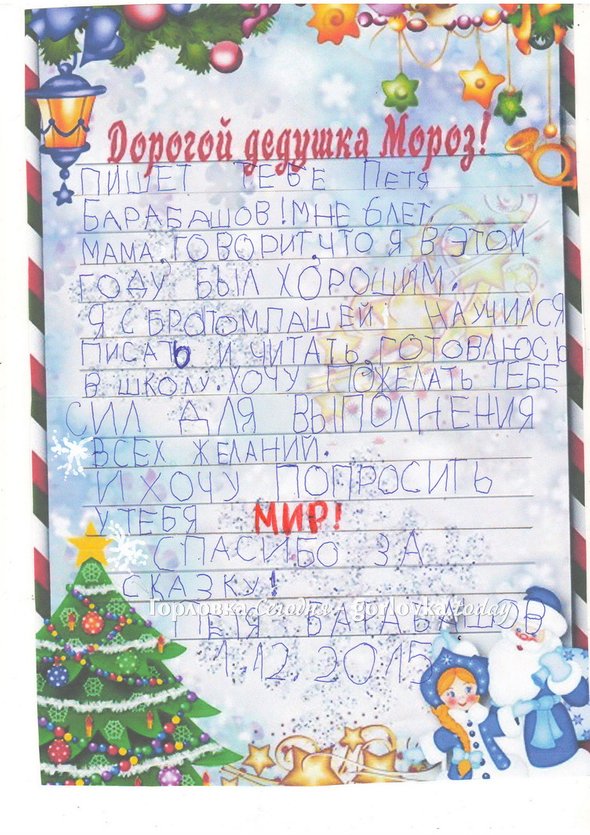 Дорогой дедушка Мороз!
ПИШЕТ ТЕБЕ ПЕТЯ
БАРАБАШОВ! МНЕ 6 ЛЕТ.
МАМА ГОВОРИТ, ЧТО Я В ЭТОМ
ГОДУ БЫЛ ХОРОШИМ.
Я С БРАТОМ ПАШЕЙ НАУЧИЛСЯ
ПИСАТЬ И ЧИТАТЬ, ГОТОВЛЮСЬ
В ШКОЛУ. ХОЧУ ПОЖЕЛАТЬ ТЕБЕ
СИЛ ДЛЯ ВЫПОЛНЕНИЯ
ВСЕХ ЖЕЛАНИЙ.
И ХОЧУ ПОПРОСИТЬ
У ТЕБЯ МИР!
СПАСИБО ЗА
СКАЗКУ!
Горловка сегодня - gorlovka.today
ПЕТЯ БАРАБАШОВ
1.12.2015